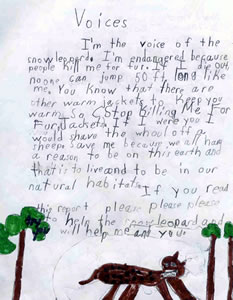 Voices
I'm the voice of the
snow leopard. I'm endangered because
people kill me for fur. If I die out,
no one can jump 50 ft long like
me. You know that there are
other warm jackets to keep you
warm. So Stop Killing Me For
For Jackets. If I were you I
would shave the whoul off a
sheep. Save me because we all have
a reason to be on this earth and
that is to live and to be in our
natural habitats. If you read
this report please please please
to help the snow leopard and
will help me and you.